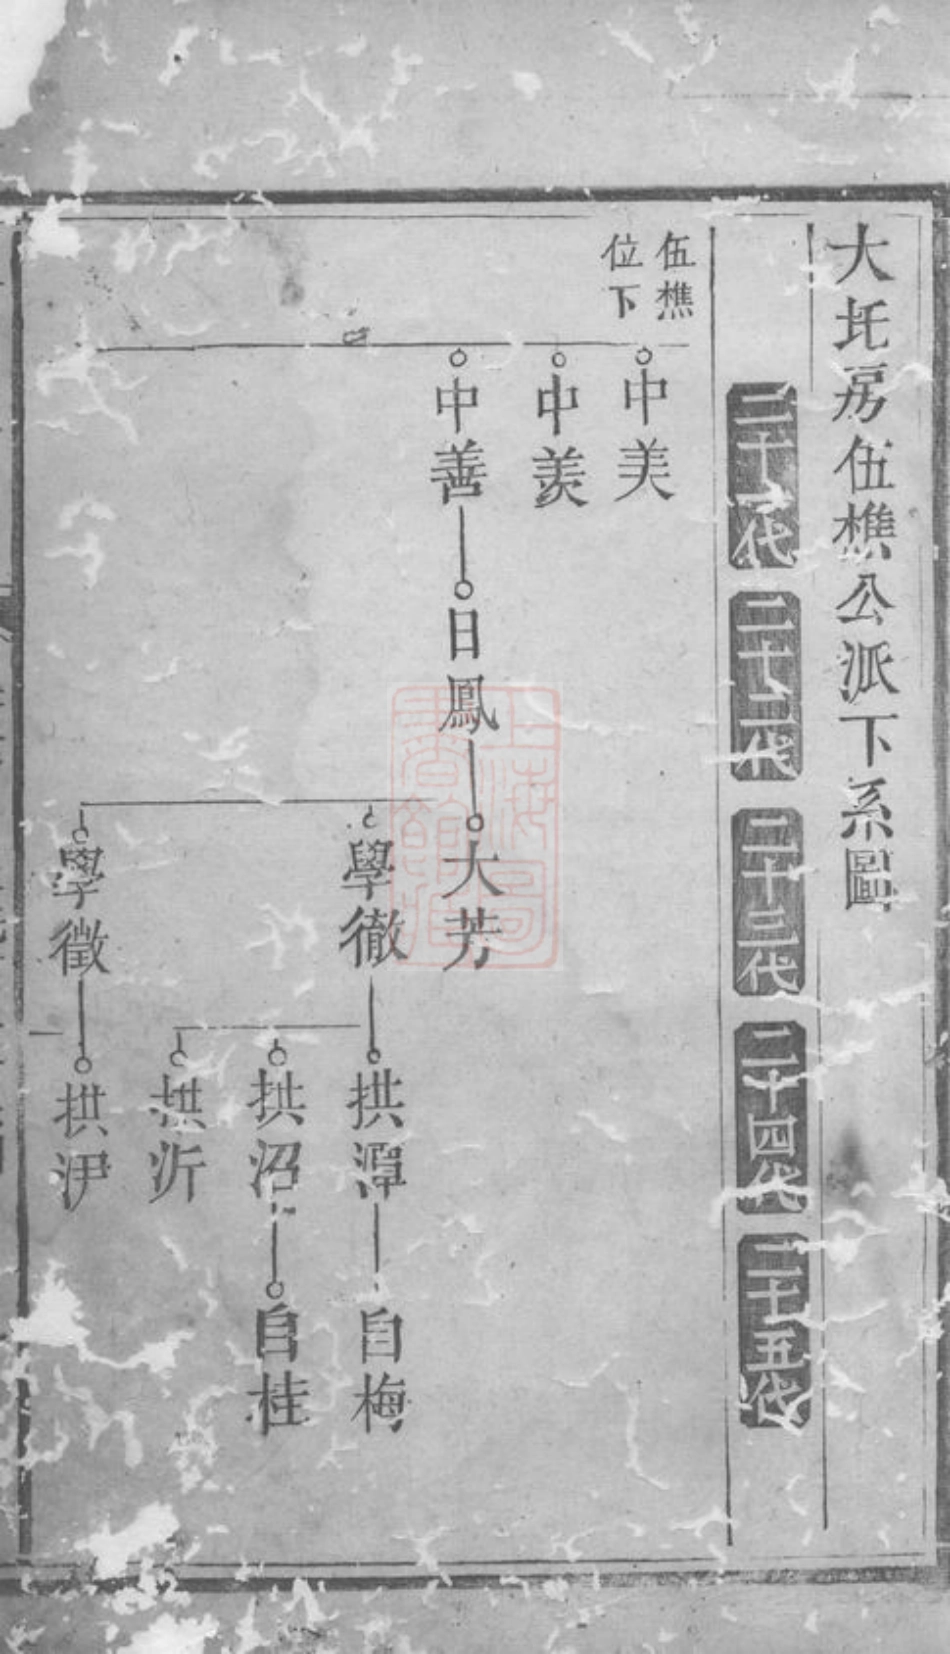 大托房伍樵公派下系圖
二十一代
二十二代
二十三代
二十四代
二十五代
伍樵
位下
中美
中羨
中善
日鳳
大芳
學徹
拱潭
自梅
拱沼
自桂
拱沂
學徵
拱伊